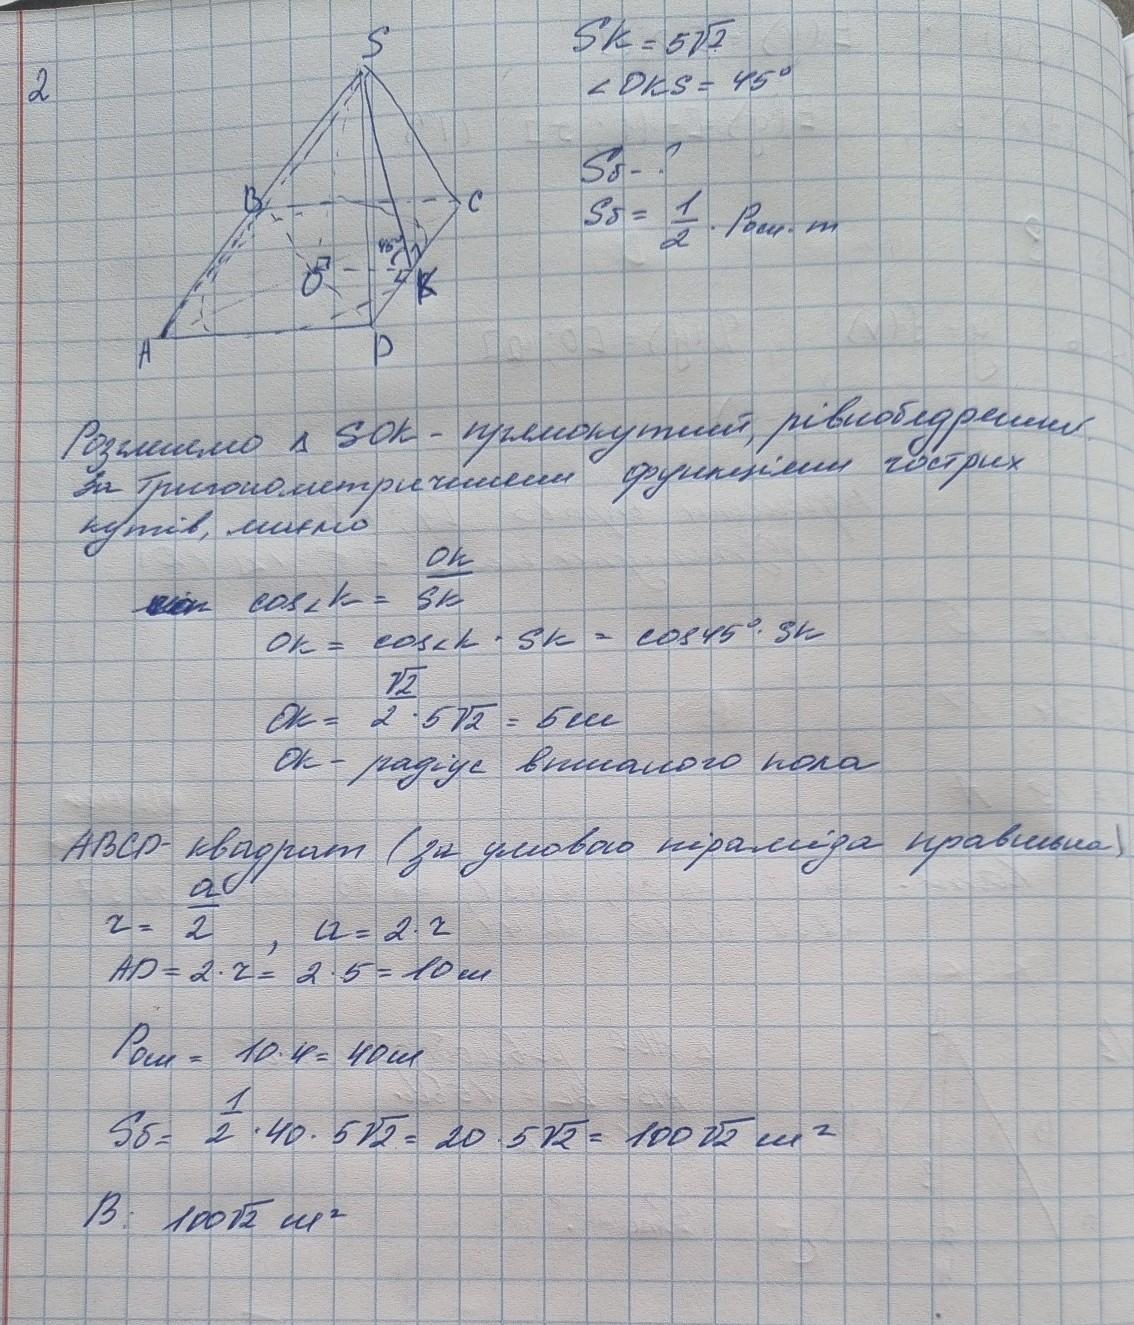 2
S
B
C
45°
O
K
A
D
SK = 5√2
∠OKS = 45°
Sб - ?
Sб = 1/2 · Pосн · m
Розглянемо Δ SOK - прямокутний, рівнобедрений.
За тригонометричними функціями гострих
кутів, маємо
cos∠K = OK/SK
OK = cos∠K · SK = cos45° · SK
OK = √2/2 · 5√2 = 5см
OK - радіус вписаного кола
ABCD - квадрат (за умовою піраміда правильна)
r = a/2 , a = 2·r
AD = 2·r = 2·5 = 10см
Pосн = 10·4 = 40см
Sб = 1/2 · 40 · 5√2 = 20 · 5√2 = 100√2 см²
В: 100√2 см²